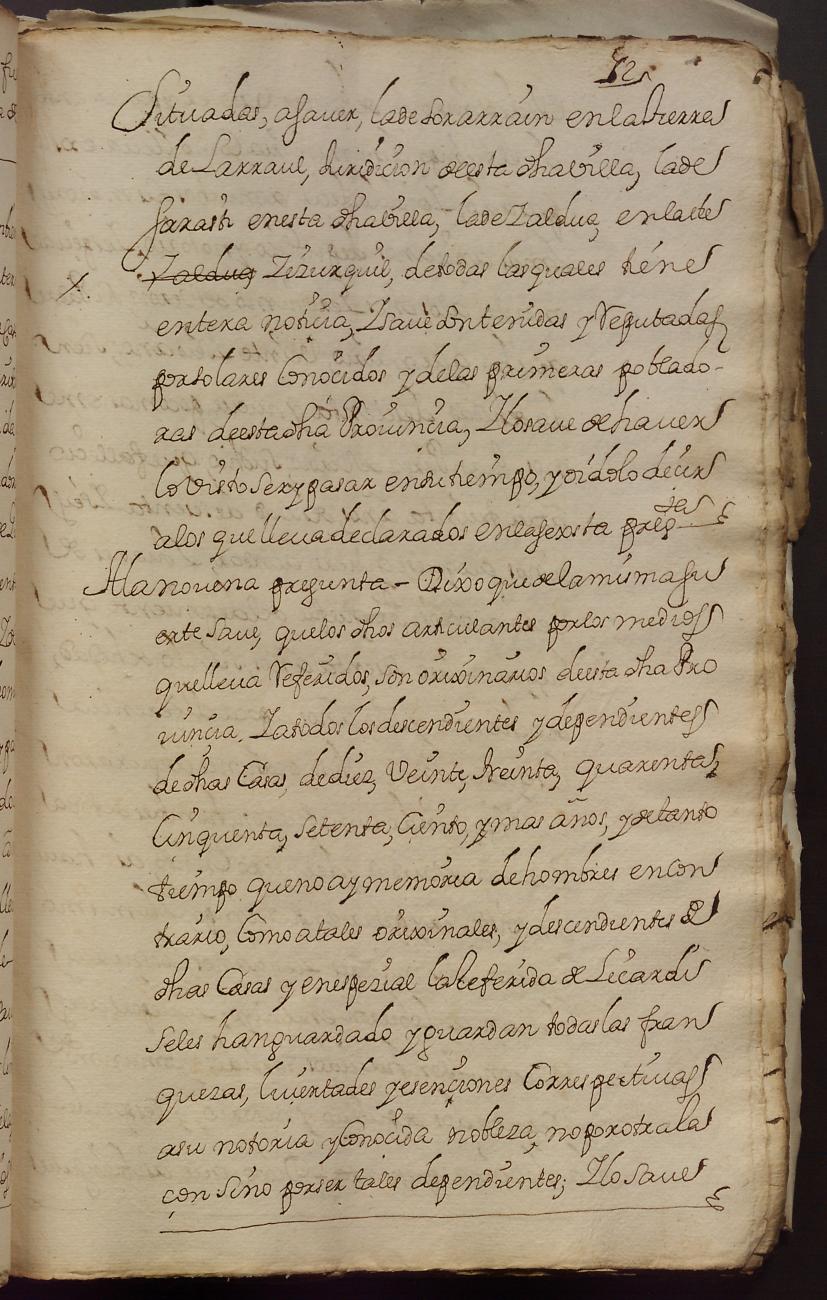 12
Situadas, a saver, la de Sorarrain en la tierra
de Larraul, Juridicion de esta dha Villa, la de
Garasti en esta dha Villa, la de Zaldua, en la de
Zaldua Zizurquil, de todas las quales tiene
entera noticia, Y save son tenidas y Reputadas
por solares Conocidos y de las primeras poblado-
ras de esta dha Provincia, Y lo save de haver
lo visto ser y pasar en su tiempo, y oido lo decir
a los que lleva declarados en la sexsta pregtas
A la novena pregunta - Dixo que de la misma su
erte save, que los dhos articulantes por los medios
que lleva Referidos, son orixinarios de esta dha Pro
vincia. Y a todos los descendientes y dependientes
de dhas Casas, de diez, Veinte, treinta, quarenta,
Cinquenta, setenta, Ciento, y mas años, y de tanto
tiempo que no ay memoria de hombres en con
trario, Como a tales orixinales, y descendientes de
dhas Casas y en espezial la Referida de Licardi
se les han guardado y guardan todas las fran
quezas, livertades y esenciones Correspectivas
a su notoria y Conocida nobleza, no por otra la
con sino por ser tales dependientes; Y lo save